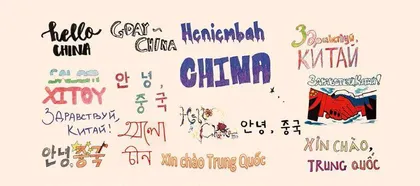 hello
CHINA
GDAY~
CHINA
CHINA
Здравствуй,
КИТАЙ
SALOM
XITOY
안녕,
중국
ЗДРАВСТВУЙ,
КИТАЙ!
হ্যালো
চীন
Hello
China
안녕, 중국
ЗДРАВСТВУЙ, КИТАЙ!
안녕 중국
Xin chào Trung Quốc
XIN CHÀO,
TRUNG QUỐC